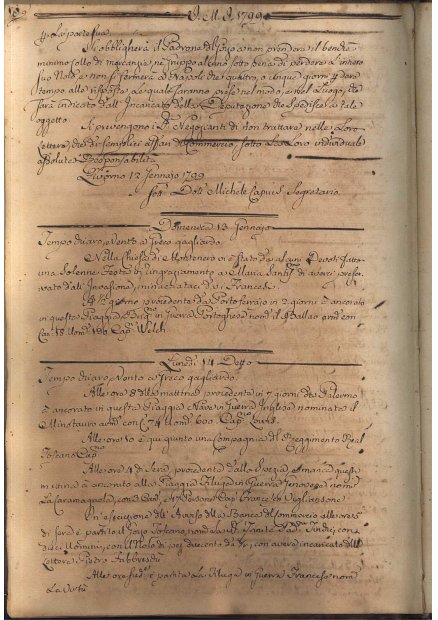 1799
p. la partenza.
Si obbligherà il Padrone del Gozo a non prendere il benchè
minimo sollo di mercanzie, nè gruppo alcuno sotto pena di perdere l'intero
suo Nolo, e non si fermerà a Napoli che quattro, o cinque giorni p. dare
tempo alle risposte, le quali saranno prese nel modo, e nel Luogo, che
sarà indicato dall'Incaricato della Deputazione che si spedisce a tale
oggetto.
Si prevengono i Negozianti di non trattare nelle Loro
Lettere, che di semplici affari di Commercio, sotto la Loro individuale
assoluta Responsabilità.
Livorno 12 Jennajo 1799
Dott. Michele Segretario.
Domenica 13 Jennajo
Tempo chiaro, e Vento a Greco gagliardo.
Nella Chiesa di Montenero vi è stata da alcuni Devoti fatta
una Solenne Festa di ringraziamento a Maria Santis. di averci preser-
vato dall'Invasione, minacciataci da i Francesi.
A ½ giorno procedente da Porto ferrajo in 2. giorni è ancorato
in questa Spiaggia, il Brig. in Guerra Portoghese nom. il Ballao arm. con
Can. 18. Uom. 120 Cap. Welch.
Lunedì 14 Detto
Tempo chiaro, Vento a Greco gagliardo.
Alle ore 8 della mattina procedente in 7 giorni da Palermo
è ancorato in questa Spiaggia Nave in Guerra Inglese nominata il
Minotauro arm. con C. 74 Uom. 600 Cap. Louis.
Alle ore 10 è qui giunto una Compagnia del Reggimento Real
Toscano
Alle ore 4 di Sera, procedente dalla Spezia, e manca questa
mattina è ancorato alla Spiaggia Filuga in Guerra Genovese nom.
La Caramagnola, con 2 Can. e 47 Persone Cap. France. co Viglianzone
In esecuzione dell'Avviso della Banca del Commercio alle ore 5
di sera è partito il Gozo Toscano, nom. la SS. Trinità
dieci Uomini, con il Nolo di pezze duecento da 8 r., con avere incaricato delle
Lettere, Pietro Fabbreschi
Alle ora sud. è partita La Filuga in Guerra Francese nom.
La Virtù